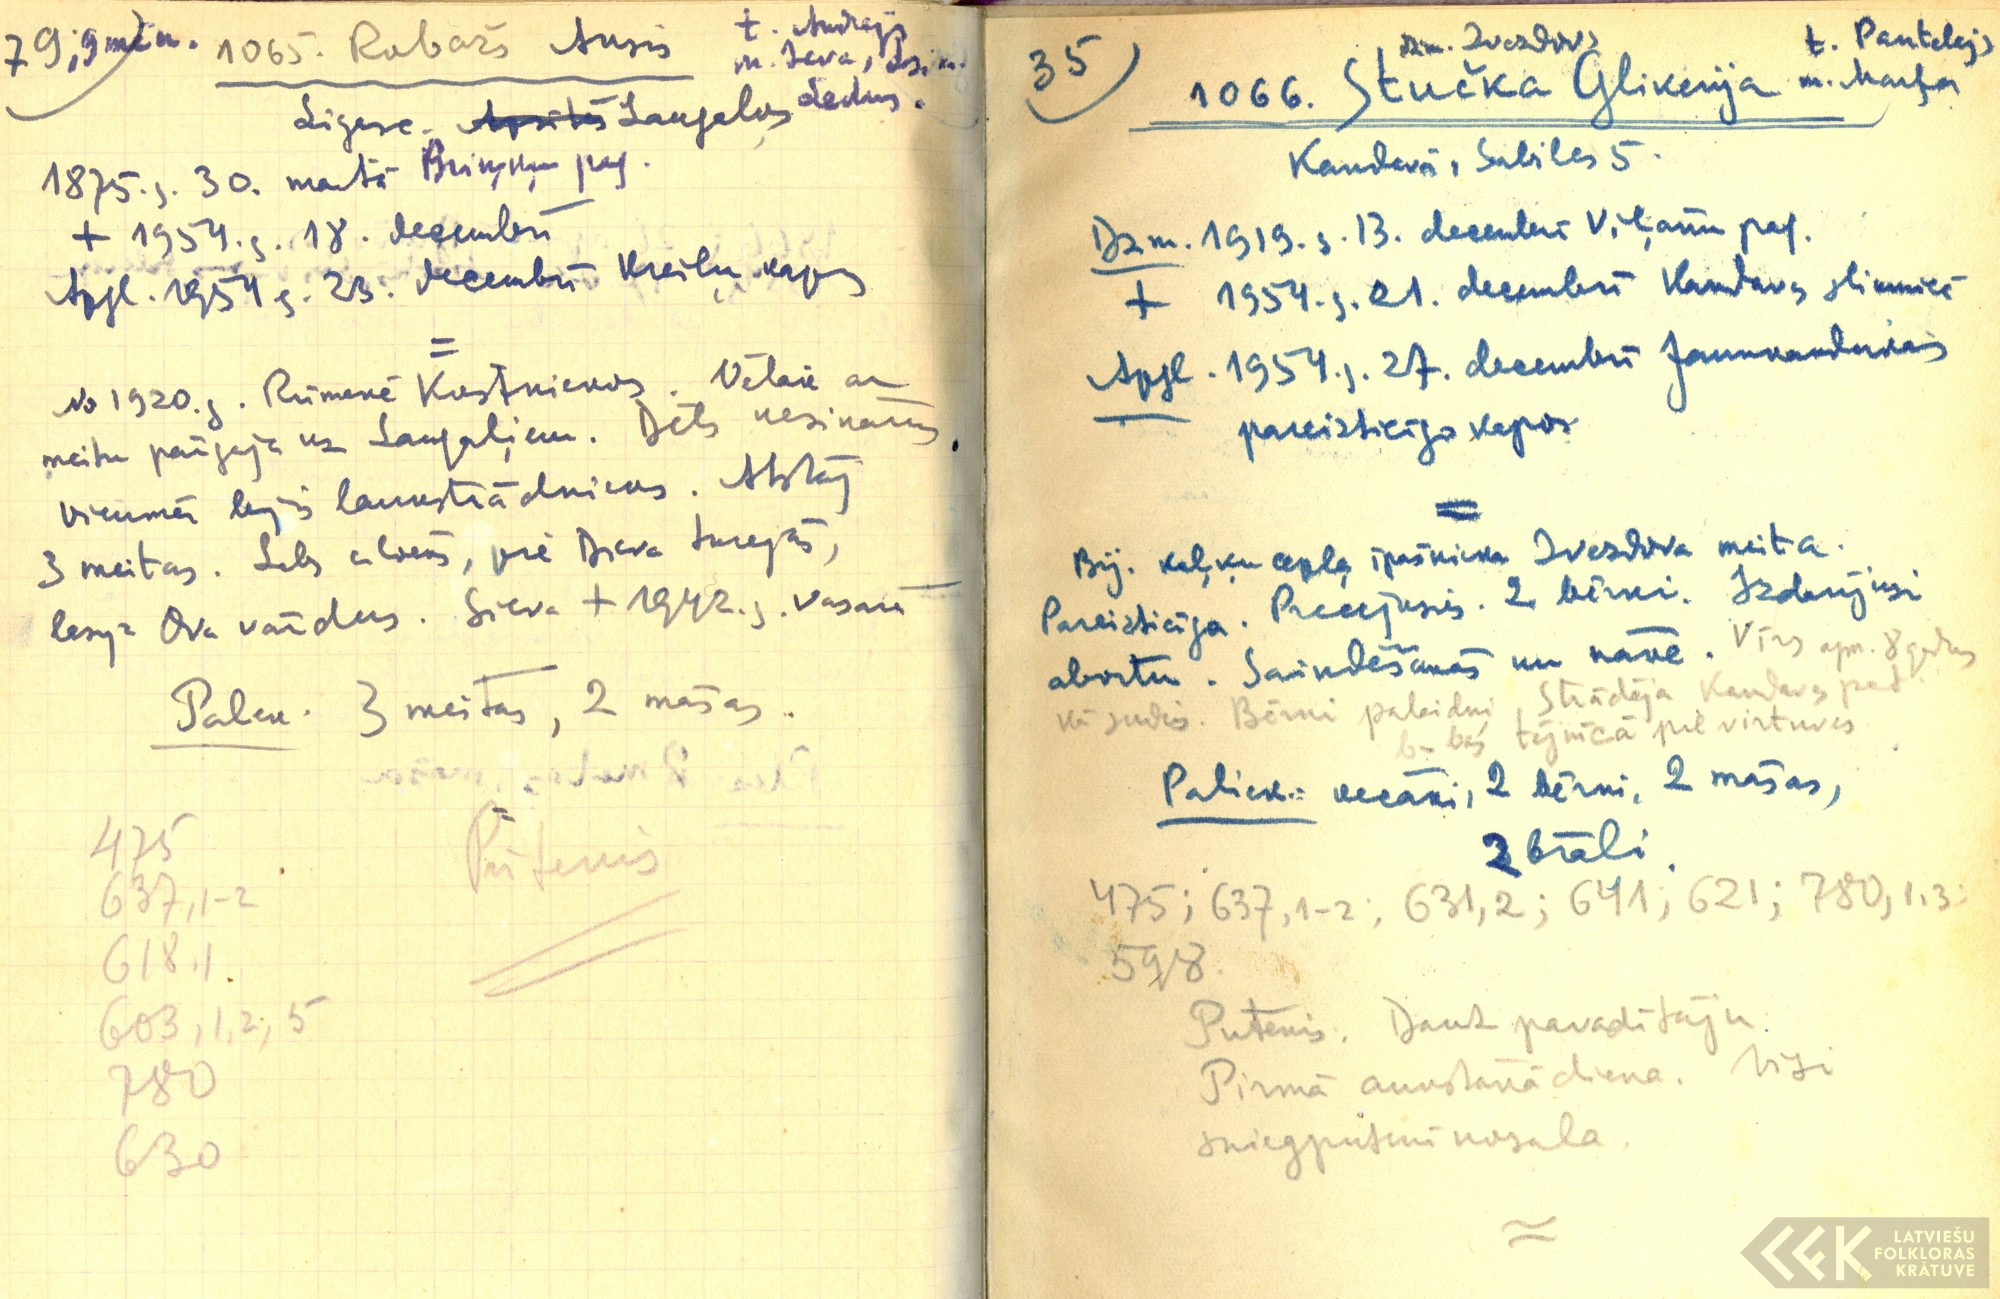 79; 9 mēn.
1065. Rubažs Ansis
t. Andrejs
m. Ieva, dzim.
Ledus.
Līgere. Laugaļos
1875.g. 30. martā Briņķu pag.
+ 1954.g. 18. decembrī
Apgl. 1954.g. 23. decembrī Kreiļu kapos
=
No 1920.g. Rūmenē Kostnieros. Vēlāk ar
meitu pārgāja uz Laugaļiem. Dēls nezināms,
vienmēr bijis laukstrādnieks. Atstāj
3 meitas. Labs cilvēks, pie Dieva turējās,
lasīja Dva vārdus. Sieva + 1942.g. vasarā
Paliek. 3 meitas, 2 māsas.
475
637,1-2
618,1
603,1,2,5
780
630
Putenis
35
dzim. Zvezdova
1066. Stučka Glikerija
t. Pantelejs
m. Marfa
Kandavā, Sabiles 5.
Dzm. 1919.g. 13. decembrī Viļānu pag.
+ 1954.g. 21. decembrī Kandavas slimnīcā
Apgl. 1954.g. 27. decembrī Jaunkandavas
pareizticīgo kapos
=
Bij. kaļķu cepļa īpašnieka Zvezdova meita.
Pareizticīga. Precējusies. 2 bērni. Izdarījusi
abortu. Saindēšanās un nāve. Vīrs apm. 8 gadus
kā zudis. Bērni palaidņi. Strādāja Kandavas pat.
b-bas tējnīcā pie virtuves
Paliek: vecāki, 2 bērni, 2 māsas,
2 brāļi.
475; 637,1-2; 631,2; 641; 621; 780,1,3;
598.
Putenis. Daudz pavadītāju.
Pirmā aukstākā diena. Visi
sniegputenī nosala.
LATVIEŠU
FOLKLORAS
KRĀTUVE